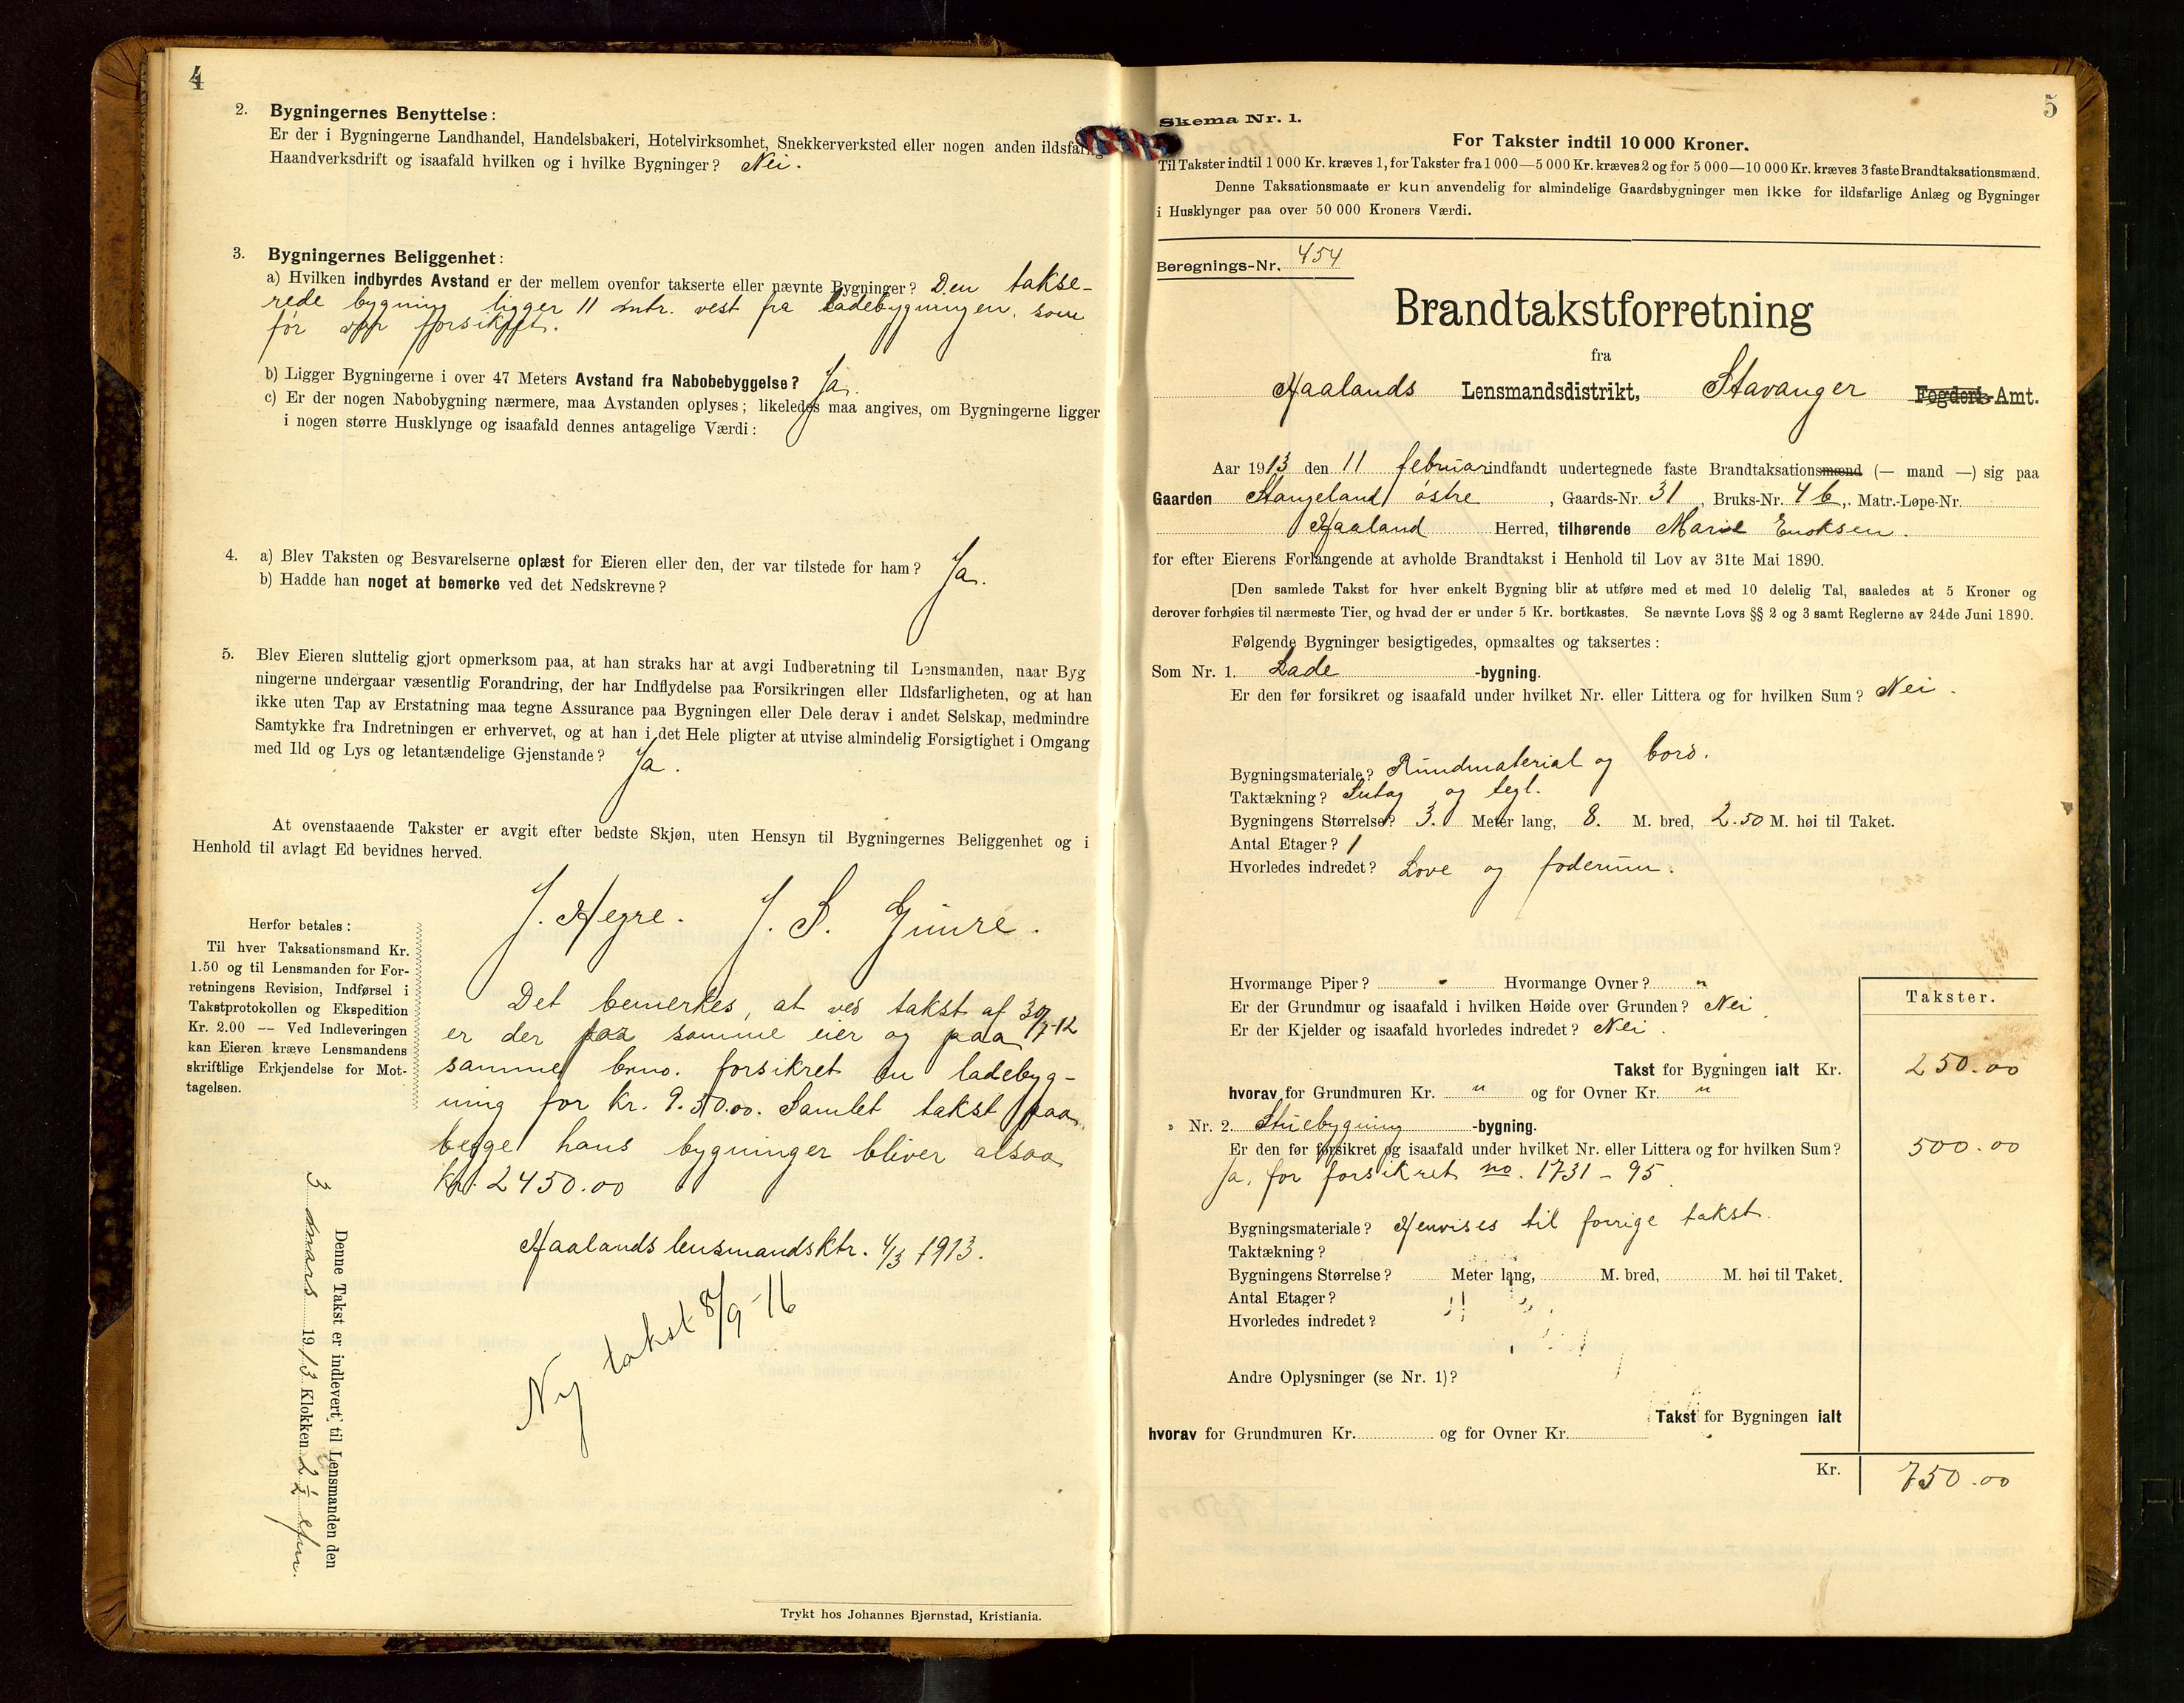 4
2. Bygningernes Benyttelse:
Er der i Bygningerne Landhandel, Handelsbakeri, Hotelvirksomhet, Snekkerverksted eller nogen anden ildsfarlig
Haandverksdrift og isaafald hvilken og i hvilke Bygninger? Nei.
3. Bygningernes Beliggenhet:
a) Hvilken indbyrdes Avstand er der mellem ovenfor takserte eller nævnte Bygninger? Den takse-
rede bygning ligger 11 mtr. vest fra ladebygningen, som
før forsikret.
b) Ligger Bygningerne i over 47 Meters Avstand fra Nabobebyggelse? Ja.
c) Er der nogen Nabobygning nærmere, maa Avstanden oplyses; likeledes maa angives, om Bygningerne ligger
i nogen større Husklynge og isaafald dennes antagelige Værdi:
4. a) Blev Taksten og Besvarelserne oplæst for Eieren eller den, der var tilstede for ham? Ja.
b) Hadde han noget at bemerke ved det Nedskrevne?
5. Blev Eieren sluttelig gjort opmerksom paa, at han straks har at avgi Indberetning til Lensmanden, naar Byg
ningerne undergaar væsentlig Forandring, der har Indflydelse paa Forsikringen eller Ildsfarligheten, og at han
ikke uten Tap av Erstatning maa tegne Assurance paa Bygningen eller Dele derav i andet Selskap, medmindre
Samtykke fra Indretningen er erhvervet, og at han i det Hele pligter at utvise almindelig Forsigtighet i Omgang
med Ild og Lys og letantændelige Gjenstande? Ja.
At ovenstaaende Takster er avgit efter bedste Skjøn, uten Hensyn til Bygningernes Beliggenhet og i
Henhold til avlagt Ed bevidnes herved.
J. Hegre. J. S. Gimre.
Herfor betales:
Til hver Taksationsmand Kr.
1.50 og til Lensmanden for For-
retningens Revision, Indførsel i
Takstprotokollen og Ekspedition
Kr. 2.00 — Ved Indleveringen
kan Eieren kræve Lensmandens
skriftlige Erkjendelse for Mot-
tagelsen.
Det bemerkes, at ved takst af 30/7-12
er der paa samme eier og paa
samme brno. forsikret en ladebyg-
ning for kr. 930.00. Samlet takst paa
begge hans bygninger bliver alsaa
kr. 2450.00
Haalands lensmandsktr. 4/3 1913.
Ny takst 8/9-16
Denne Takst er indlevert til Lensmanden den
3 mars 1913 Klokken 2 1/2 efm.
Trykt hos Johannes Bjørnstad, Kristiania.
5
Skema Nr. 1.
For Takster indtil 10 000 Kroner.
Til Takster indtil 1 000 Kr. kræves 1, for Takster fra 1 000—5 000 Kr. kræves 2 og for 5 000—10 000 Kr. kræves 3 faste Brandtaksationsmænd.
Denne Taksationsmaate er kun anvendelig for almindelige Gaardsbygninger men ikke for ildsfarlige Anlæg og Bygninger
i Husklynger paa over 50 000 Kroners Værdi.
Beregnings-Nr. 454
Brandtakstforretning
fra
Haalands Lensmandsdistrikt, Stavanger Fogderi-Amt.
Aar 1913 den 11 februar indfandt undertegnede faste Brandtaksationsmænd (— mand —) sig paa
Gaarden Stangeland østre, Gaards-Nr. 31, Bruks-Nr. 4 b, Matr.-Løpe-Nr.
Haaland Herred, tilhørende Marie Enoksen.
for efter Eierens Forlangende at avholde Brandtakst i Henhold til Lov av 31te Mai 1890.
[Den samlede Takst for hver enkelt Bygning blir at utføre med et med 10 delelig Tal, saaledes at 5 Kroner og
derover forhøies til nærmeste Tier, og hvad der er under 5 Kr. bortkastes. Se nævnte Lovs §§ 2 og 3 samt Reglerne av 24de Juni 1890.
Følgende Bygninger besigtigedes, opmaaltes og taksertes:
Som Nr. 1. Lade -bygning.
Er den før forsikret og isaafald under hvilket Nr. eller Littera og for hvilken Sum? Nei.
Bygningsmateriale? Rundmaterial og bord.
Taktækning? Sutag og tegl.
Bygningens Størrelse? 3. Meter lang, 8. M. bred, 2.50 M. høi til Taket.
Antal Etager? 1
Hvorledes indredet? Love og foderum.
Hvormange Piper? " Hvormange Ovner? "
Er der Grundmur og isaafald i hvilken Høide over Grunden? Nei.
Er der Kjelder og isaafald hvorledes indredet? Nei.
Takster.
Takst for Bygningen ialt Kr. 250.00
hvorav for Grundmuren Kr. " og for Ovner Kr. "
" Nr. 2. Stuebygning -bygning.
Er den før forsikret og isaafald under hvilket Nr. eller Littera og for hvilken Sum? 500.00
Ja, før forsikret no. 1731-95.
Bygningsmateriale? Henvises til forrige takst.
Taktækning?
Bygningens Størrelse? Meter lang, M. bred, M. høi til Taket.
Antal Etager?
Hvorledes indredet?
Andre Oplysninger (se Nr. 1)?
Takst for Bygningen ialt
hvorav for Grundmuren Kr. og for Ovner Kr.
Kr. 750.00